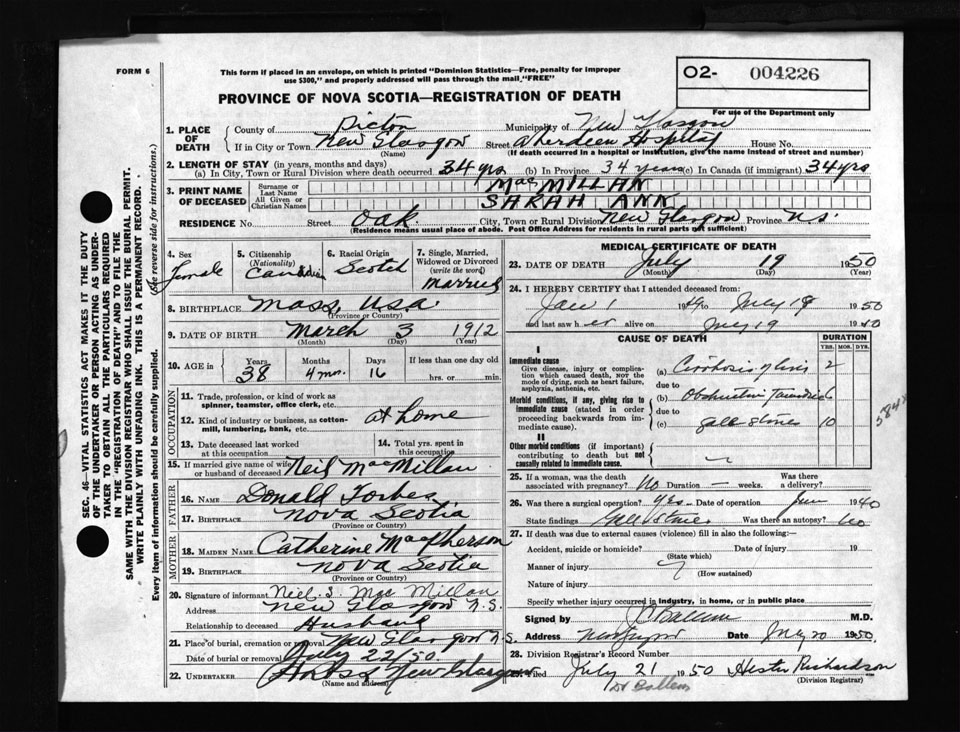 FORM 6
This form if placed in an envelope, on which is printed "Dominion Statistics—Free, penalty for improper
use $300," and properly addressed will pass through the mail "FREE"
PROVINCE OF NOVA SCOTIA—REGISTRATION OF DEATH
O2- 004226
For use of the Department only
1. PLACE OF DEATH
County of Pictou Municipality of New Glasgow
If in City or Town New Glasgow Street Aberdeen Hospital House No.
(Name) (If death occurred in a hospital or institution, give the name instead of street and number)
2. LENGTH OF STAY (in years, months and days)
(a) In City, Town or Rural Division where death occurred 34 yrs (b) In Province 34 years (c) In Canada (if immigrant) 34 yrs
3. PRINT NAME OF DECEASED
Surname or Last Name MacMILLAN
All Given or Christian Names SARAH ANN
RESIDENCE No. Street Oak City, Town or Rural Division New Glasgow Province N.S.
(Residence means usual place of abode. Post Office Address for residents in rural parts not sufficient)
4. Sex
Female
5. Citizenship
(Nationality)
Canadian
6. Racial Origin
Scotch
7. Single, Married,
Widowed or Divorced
(write the word)
Married
8. BIRTHPLACE Mass, U.S.A.
(Province or Country)
9. DATE OF BIRTH March 3 1912
(Month) (Day) (Year)
10. AGE in
Years Months Days If less than one day old
38 4 mos. 16 hrs. or min.
OCCUPATION
11. Trade, profession, or kind of work as
spinner, teamster, office clerk, etc.
12. Kind of industry or business, as cotten-
mill, lumbering, bank, etc. at home
13. Date deceased last worked
at this occupation
14. Total yrs. spent in
this occupation
15. If married give name of wife
or husband of deceased Neil MacMillan
FATHER
16. NAME Donald Forbes
17. BIRTHPLACE Nova Scotia
(Province or Country)
MOTHER
18. MAIDEN NAME Catherine MacPherson
19. BIRTHPLACE Nova Scotia
(Province or Country)
20. Signature of informant Neil. S. MacMillan
Address New Glasgow N.S.
Relationship to deceased Husband
21. Place of burial, cremation or removal New Glasgow N.S.
Date of burial or removal July 22/50
22. UNDERTAKER New Glasgow
(Name and address)
MEDICAL CERTIFICATE OF DEATH
23. DATE OF DEATH July 19 1950
(Month) (Day) (Year)
24. I HEREBY CERTIFY that I attended deceased from:
Jan 1 1949 to July 19 1950
and last saw her alive on July 19 1950
CAUSE OF DEATH DURATION
YRS. MOS. DYS.
I
Immediate cause
Give disease, injury or complica-
tion which caused death, NOT the
mode of dying, such as heart failure,
asphyxia, asthenia, etc.
(a) Cirrhosis of liver 2
due to
Morbid conditions, if any, giving rise to
immediate cause (stated in order
proceeding backwards from im-
mediate cause).
(b) Obstructive Jaundice 6
due to
(c) Gall stones 10
584x
II
Other morbid conditions (if important)
contributing to death but not
causally related to immediate cause.
25. If a woman, was the death
associated with pregnancy? No Duration — weeks. Was there
a delivery?
26. Was there a surgical operation? yes Date of operation 1940
State findings Gall stones Was there an autopsy? No
27. If death was due to external causes (violence) fill in also the following:—
Accident, suicide or homicide? Date of injury 19
(State which)
Manner of injury
(How sustained)
Nature of injury
Specify whether injury occurred in industry, in home, or in public place
Signed by J C Ballem M.D.
Address New Glasgow Date July 20 1950
28. Division Registrar's Record Number
Filed July 21 1950 Hester Richardson
(Division Registrar)
Dr Ballem
SEC. 46—VITAL STATISTICS ACT MAKES IT THE DUTY
OF THE UNDERTAKER OR PERSON ACTING AS UNDER-
TAKER TO OBTAIN ALL THE PARTICULARS REQUIRED
IN THE "REGISTRATION OF DEATH" AND TO FILE THE
SAME WITH THE DIVISION REGISTRAR WHO SHALL ISSUE THE BURIAL PERMIT.
WRITE PLAINLY WITH UNFADING INK. THIS IS A PERMANENT RECORD.
Every item of information should be carefully supplied. (See reverse side for instructions.)